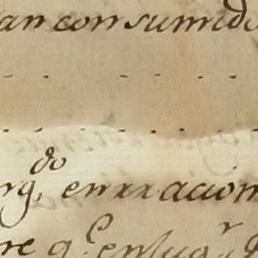 an consumido
rg.do en rraccion
re q.e en lug.r